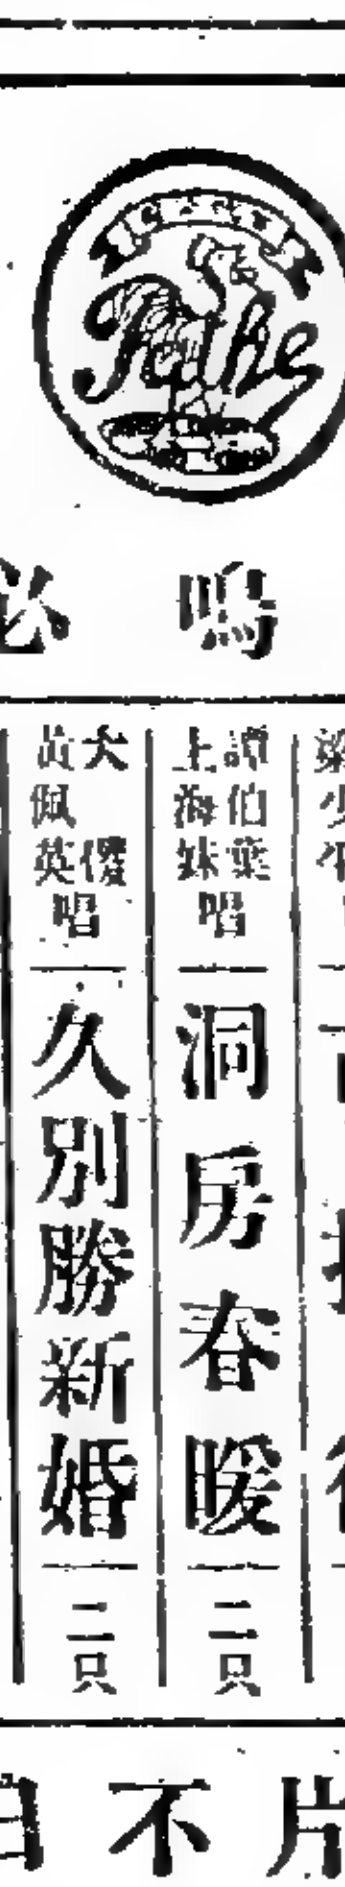 Pathe
鳴 必
譚伯葉
上海妹
唱
洞房春暖
二只
大傻
黃佩英
唱
久別勝新婚
二只
片不